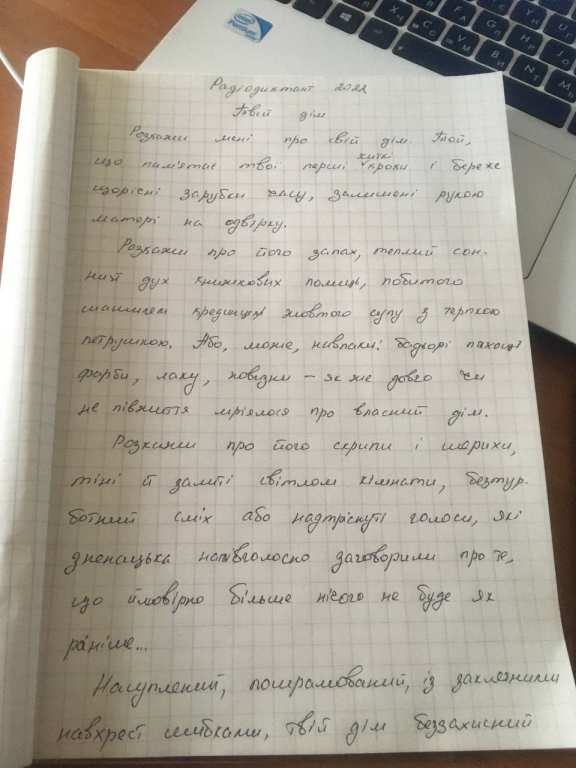 Радіодиктант 2022
Твій дім
Розкажи мені про свій дім. Той,
що пам'ятає твої перші хиткі кроки і береже
щорічні зарубки часу, залишені рукою
матері на одвірку.
Розкажи про його запах, теплий сон-
ний дух книжкових полиць, побитого
шашелем креденцу, жовтого супу з терпкою
петрушкою. Або, може, навпаки: бадьорі пахощі
фарби, лаку, новизни – як же довго чи
не півжиття мріялося про власний дім.
Розкажи про його скрипи і шарихи,
тіні й залиті світлом кімнати, безтур-
ботний сміх або надтріснуті голоси, які
зненацька напівголосно заговорили про те,
що ймовірно більше нічого не буде як
раніше...
Насуплений, пошрамований, із заклеєними
навхрест шибками, твій дім беззахисний
intel
Pentium